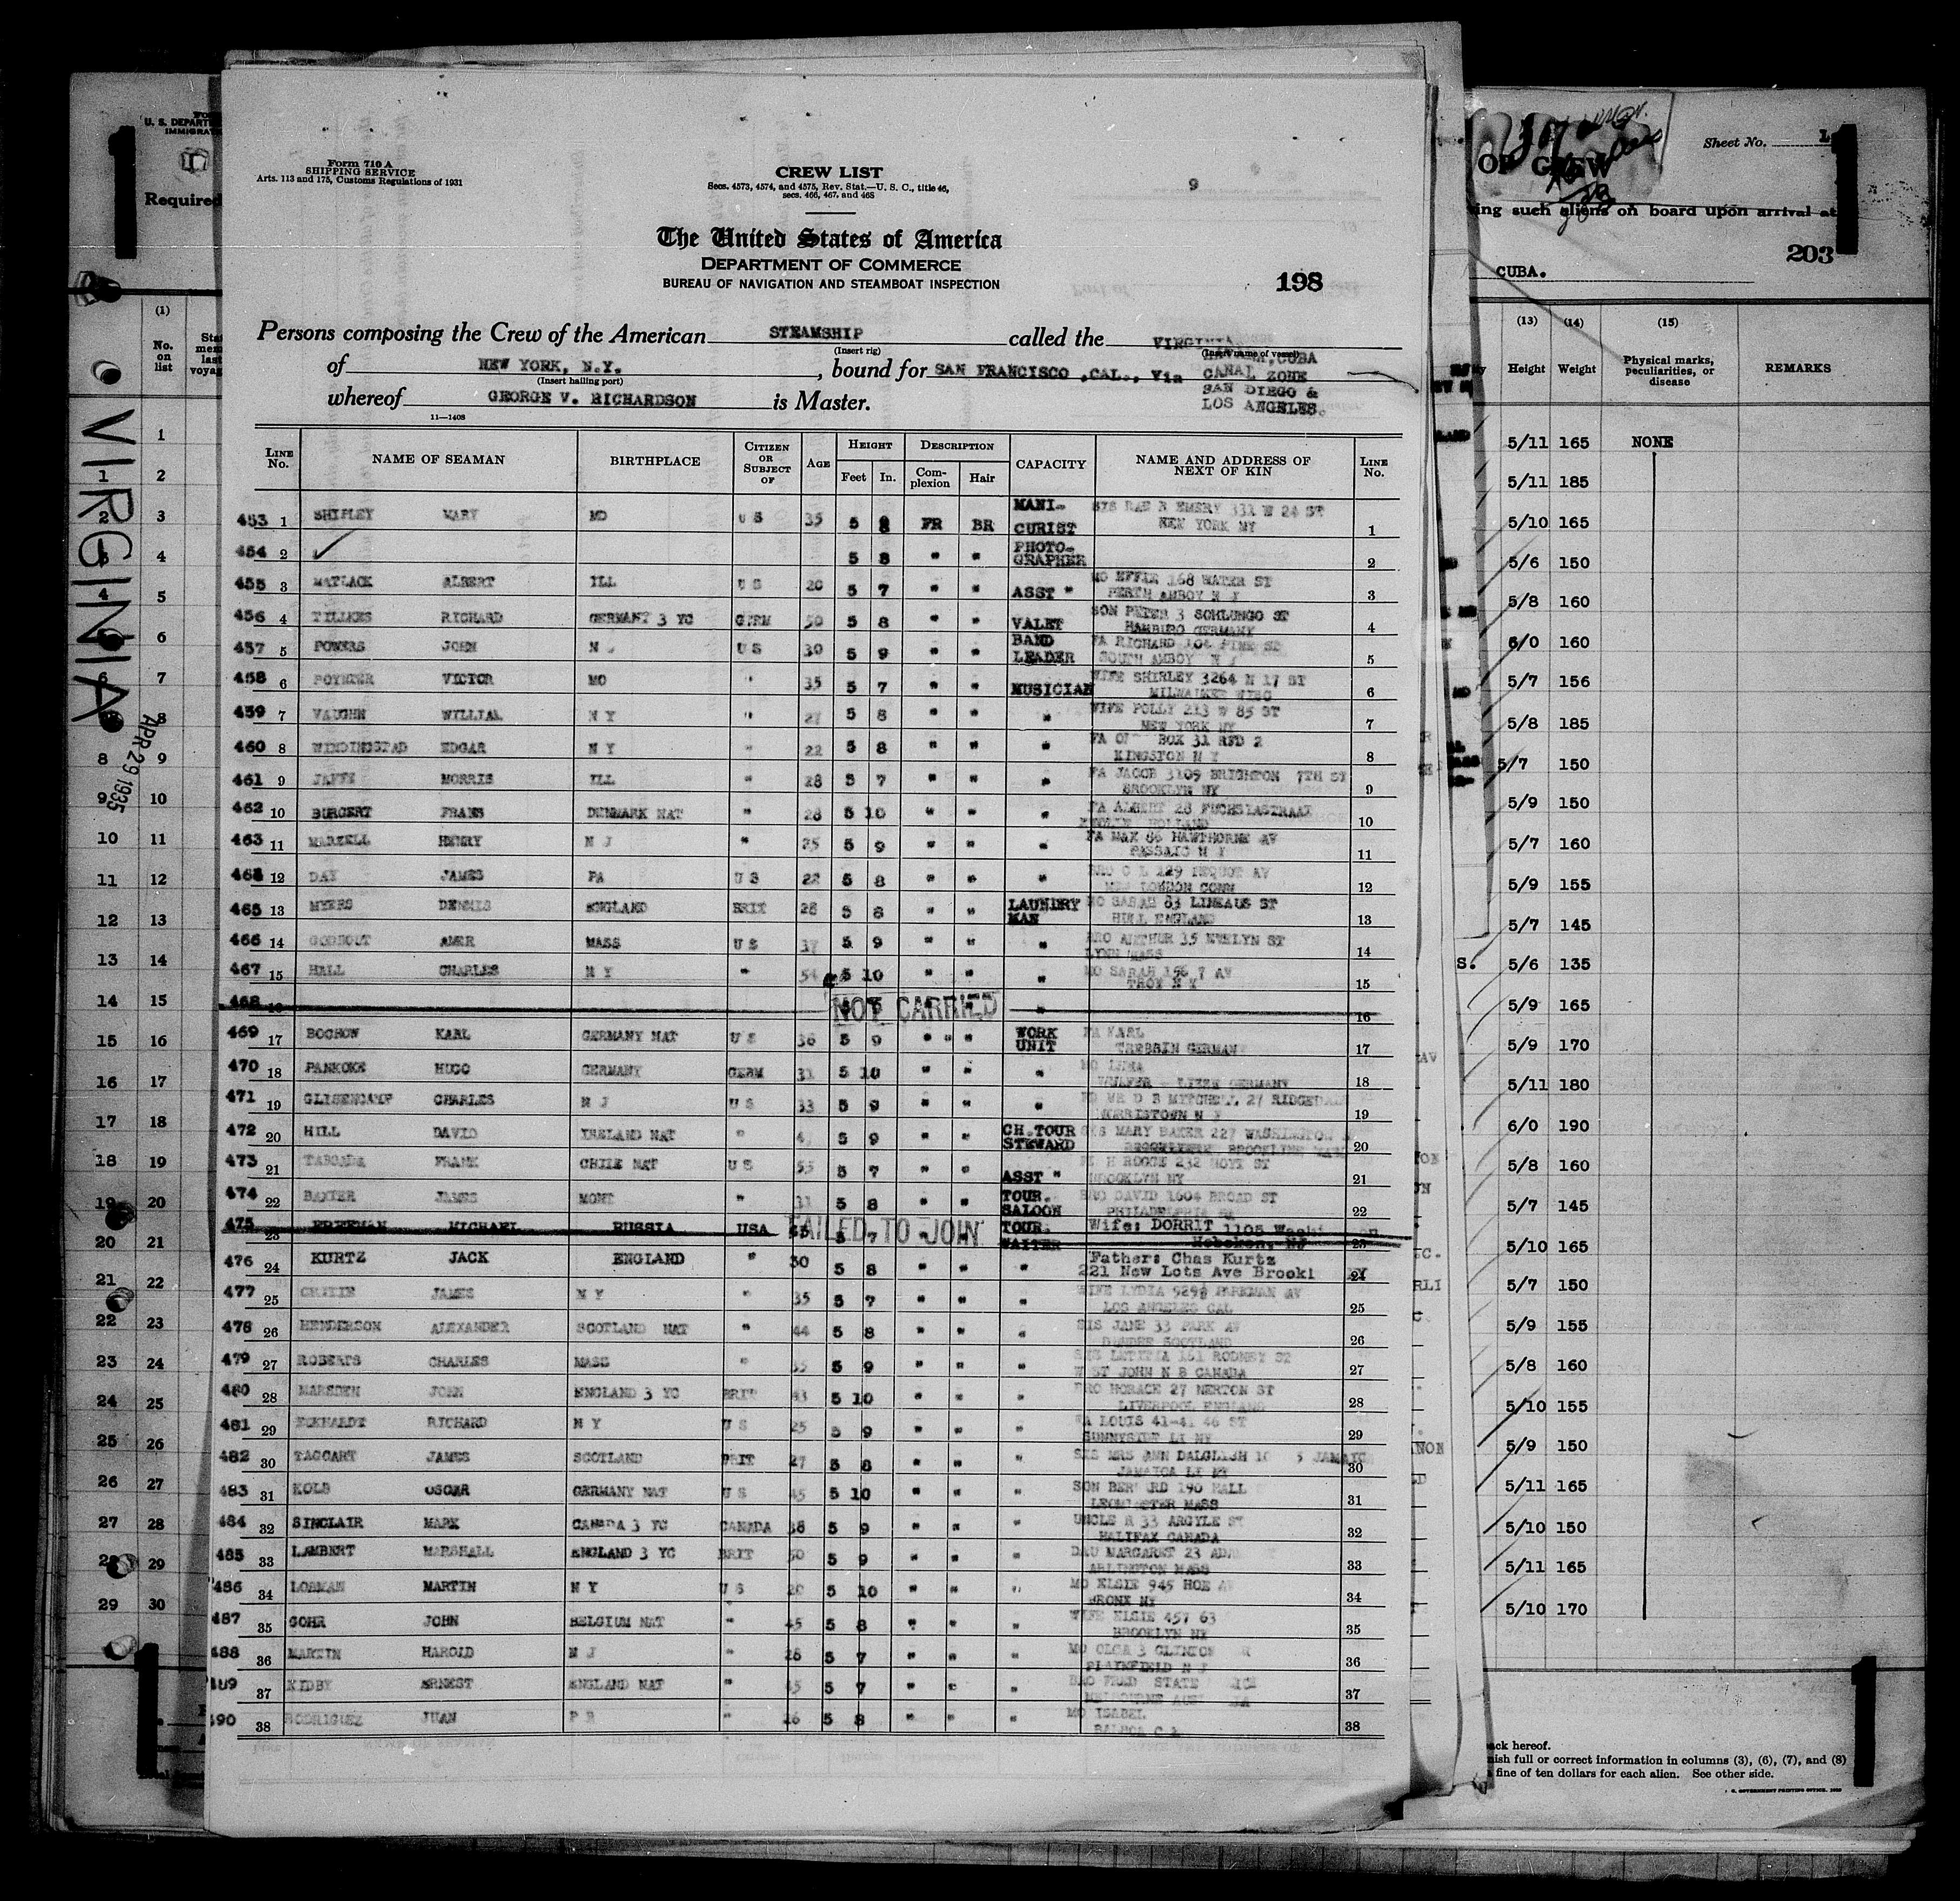 Form 710 A
SHIPPING SERVICE
Arts. 113 and 175, Customs Regulations of 1931
CREW LIST
Secs. 4573, 4574, and 4575, Rev. Stat.—U. S. C., title 46,
secs. 466, 467, and 468
9
The United States of America
DEPARTMENT OF COMMERCE
BUREAU OF NAVIGATION AND STEAMBOAT INSPECTION
198
Persons composing the Crew of the American STEAMSHIP called the VIRGINIA
(Insert rig) (Insert name of vessel)
of NEW YORK, N.Y., bound for SAN FRANCISCO, CAL., Via CUBA
CANAL ZONE
SAN DIEGO &
LOS ANGELES.
(Insert hailing port)
whereof GEORGE V. RICHARDSON is Master.
11—1408
LINE No. NAME OF SEAMAN BIRTHPLACE CITIZEN OR SUBJECT OF AGE HEIGHT Feet In. DESCRIPTION Complexion Hair CAPACITY NAME AND ADDRESS OF NEXT OF KIN LINE No.
453 1 SHIPLEY MARY MD U S 35 5 8 FR BR MANI-CURIST SIS RAE R EMERY 331 W 24 ST NEW YORK NY 1
454 2 ✓ 5 8 " " PHOTO-GRAPHER 2
455 3 MATLACK ALBERT ILL U S 20 5 7 " " ASST " MO EFFIE 168 WATER ST PERTH AMBOY N J 3
456 4 TILLKES RICHARD GERMANY 3 YC GERM 50 5 8 " " VALET SON PETER 3 GERMANY 4
457 5 POWERS JOHN N J U S 30 5 9 " " BAND LEADER FA RICHARD 104 PINE ST SOUTH AMBOY N J 5
458 6 POYNER VICTOR MO " 35 5 7 " " MUSICIAN WIFE SHIRLEY 3264 N 17 ST MILWAUKEE WISC 6
459 7 VAUGHN WILLIAM N Y " 27 5 8 " " " WIFE POLLY 213 W 85 ST NEW YORK NY 7
460 8 WINDINGSTAD EDGAR N Y " 22 5 8 " " " FA BOX 31 RFD 2 KINGSTON N Y 8
461 9 JAFFE MORRIS ILL " 28 5 7 " " " FA JACOB 3109 BRIGHTON 7TH ST BROOKLYN NY 9
462 10 BURGERT FRANS DENMARK NAT " 28 5 10 " " " FA ALBERT 28 HOLLAND 10
463 11 MARZELL HENRY N J " 25 5 9 " " " FA MAX 86 HAWTHORNE AV PASSAIC N J 11
464 12 DAY JAMES PA U S 22 5 8 " " " BRO C L 129 PEQUOT AV NEW LONDON CONN 12
465 13 MYERS DENNIS ENGLAND BRIT 28 5 8 " " LAUNDRY MAN MO SARAH 83 LINEAUS ST HULL ENGLAND 13
466 14 GODBOUT AMER MASS U S 37 5 9 " " " BRO ARTHUR 35 EVELYN ST LYNN MASS 14
467 15 HALL CHARLES N Y " 54 5 10 " " " MO SARAH 156 7 AV TROY N Y 15
468 16 NOT CARRIED " 16
469 17 BOCHOW KARL GERMANY NAT U S 36 5 9 " " " WORK UNIT FA KARL TREBBIN GERMANY 17
470 18 PANKOKE HUGO GERMANY GERM 31 5 10 " " " MO GERMANY 18
471 19 GLISENCAMP CHARLES N J U S 33 5 9 " " " MR D B MITCHELL 27 MORRISTOWN N J 19
472 20 HILL DAVID IRELAND NAT " 5 9 " " CH. TOUR STEWARD SIS MARY BAKER 227 WASHINGTON BROOKLINE MASS 20
473 21 TABOADA FRANK CHILE NAT U S 55 5 7 " " ASST " H ROGGE 232 HOYT ST BROOKLYN NY 21
474 22 BAXTER JAMES MONT " 31 5 8 " " TOUR. SALOON BRO DAVID 1604 BROAD ST PHILADELPHIA PA 22
475 23 FREEMAN MICHAEL RUSSIA USA FAILED TO JOIN 5 7 TOUR. WAITER Wife: DORRIT 1105 Hoboken, NJ 23
476 24 KURTZ JACK ENGLAND " 30 5 8 " " " Father: Chas Kurtz 221 New Lots Ave Brookl NY 24
477 25 JAMES N Y " 35 5 7 " " " WIFE LYDIA PARKMAN AV LOS ANGELES CAL 25
478 26 HENDERSON ALEXANDER SCOTLAND NAT " 44 5 8 " " " SIS JANE 33 PARK AV DUNDEE SCOTLAND 26
479 27 ROBERTS CHARLES MASS " 35 5 9 " " " LETITIA 161 RODNEY ST WEST JOHN N B CANADA 27
480 28 MARSDEN JOHN ENGLAND 3 YC BRIT 43 5 10 " " " BRO HORACE 27 MERTON ST LIVERPOOL ENGLAND 28
481 29 ECKHARDT RICHARD N Y U S 25 5 9 " " " FA LOUIS 41-41 46 ST SUNNYSIDE LI NY 29
482 30 TAGGART JAMES SCOTLAND BRIT 27 5 8 " " " SIS MRS ANN DALGLISH JAMAICA LI NY 30
483 31 KOLB OSCAR GERMANY NAT U S 45 5 10 " " " SON 190 HALL LEOMINSTER MASS 31
484 32 SINCLAIR MARK CANADA 3 YC CANADA 38 5 9 " " " UNCLE R 33 ARGYLE ST HALIFAX CANADA 32
485 33 LAMBERT MARSHALL ENGLAND 3 YC BRIT 50 5 9 " " " DAU MARGARET 23 ARLINGTON MASS 33
486 34 LOBMAN MARTIN N Y U S 20 5 10 " " " MO ELSIE 945 HOE AV BRONX NY 34
487 35 GOHR JOHN BELGIUM NAT " 45 5 8 " " " WIFE ELSIE 457 63 BROOKLYN NY 35
488 36 MARTIN HAROLD N J " 28 5 7 " " " MO OLGA 3 CLINTON PLAINFIELD N J 36
489 37 KIDBY ERNEST ENGLAND NAT " 45 5 7 " " " BRO FRED STATE MELBOURNE 37
490 38 RODRIGUEZ JUAN P R " 26 5 8 " " " MO ISABEL BALBOA C Z 38
U. S. DEPARTM
IMMIGRAT
Required
(1)
No. on list
VIRGINIA
APR 29 1935
1
1 2
2 3
3 4
4 5
5 6
6 7
7 8
8 9
9 10
10 11
11 12
12 13
13 14
14 15
15 16
16 17
17 18
18 19
19 20
20 21
21 22
22 23
23 24
24 25
25 26
26 27
27 28
28 29
29 30
Sheet No. 1
OF CREW
ing such aliens on board upon arrival at
203
CUBA.
(13) (14) (15)
Height Weight Physical marks, peculiarities, or disease REMARKS
5/11 165 NONE
5/11 185
5/10 165
5/6 150
5/8 160
6/0 160
5/7 156
5/8 185
5/7 150
5/9 150
5/7 160
5/9 155
5/7 145
5/6 135
5/9 165
5/9 170
5/11 180
6/0 190
5/8 160
5/7 145
5/10 165
5/7 150
5/9 155
5/8 160
5/10 155
5/9 150
5/11 165
5/10 150
5/11 165
5/10 170
ack hereof.
nish full or correct information in columns (3), (6), (7), and (8)
fine of ten dollars for each alien. See other side.